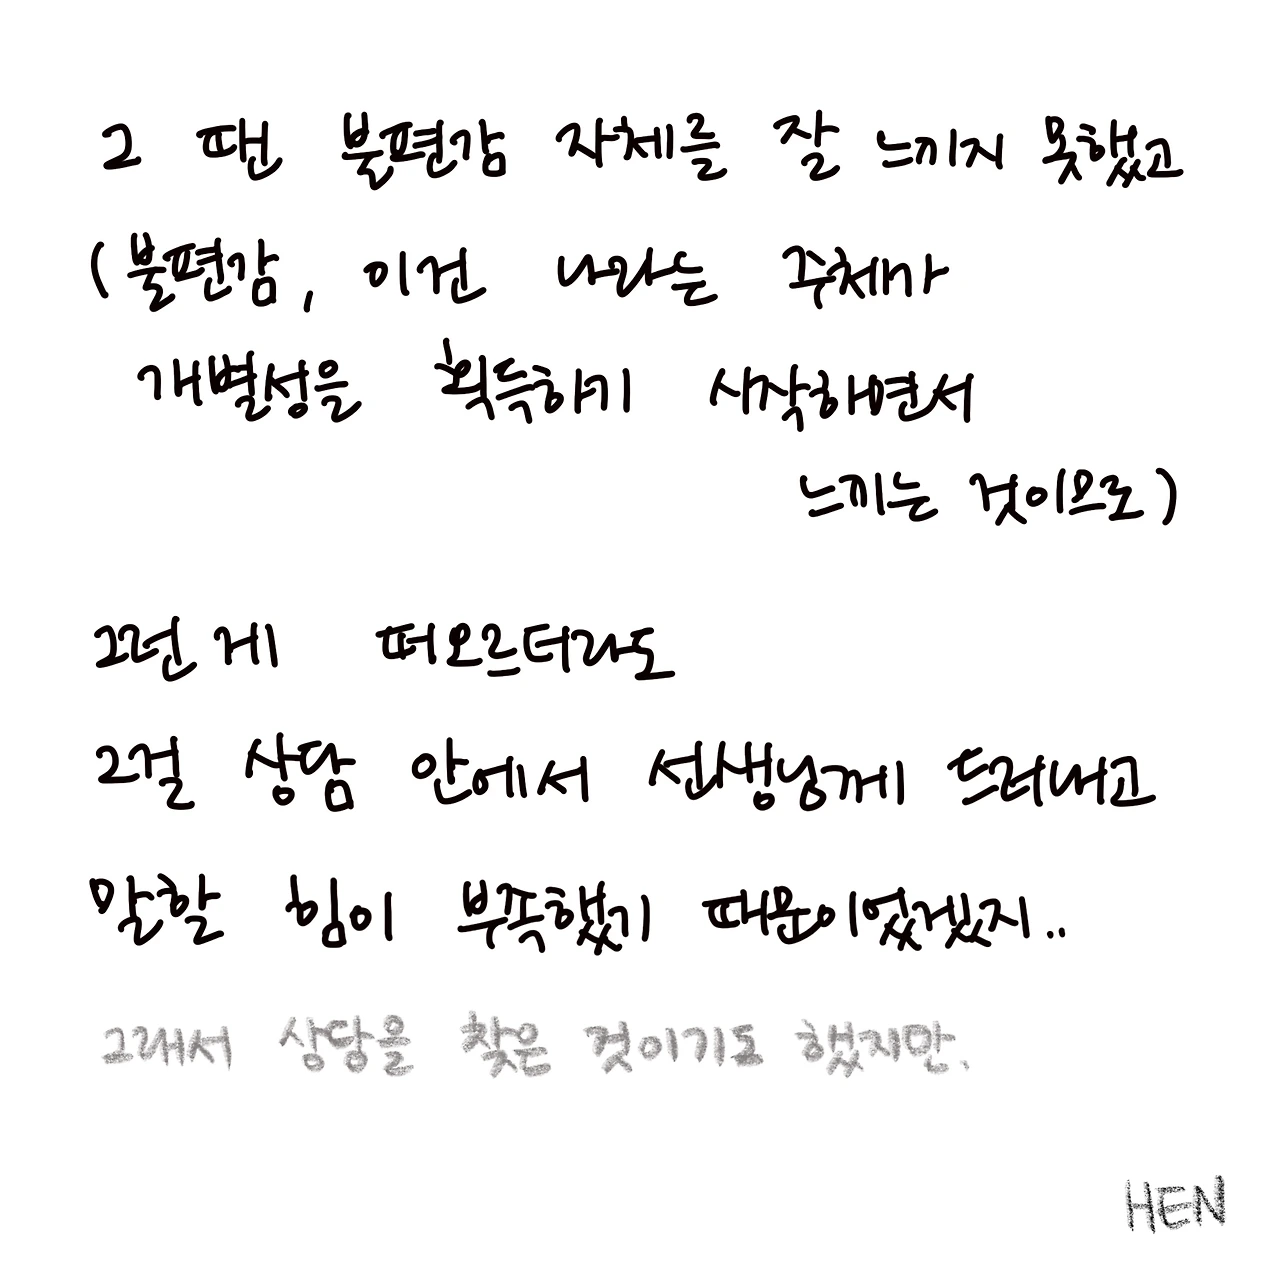 그 땐 불편감 자체를 잘 느끼지 못했고
(불편감, 이건 나라는 주체가
개별성을 획득하기 시작하면서
느끼는 것이므로)
그런 게 떠오르더라도
그걸 상담 안에서 선생님께 드러내고
말할 힘이 부족했기 때문이었겠지..
그래서 상담을 찾은 것이기도 했지만.
HEN